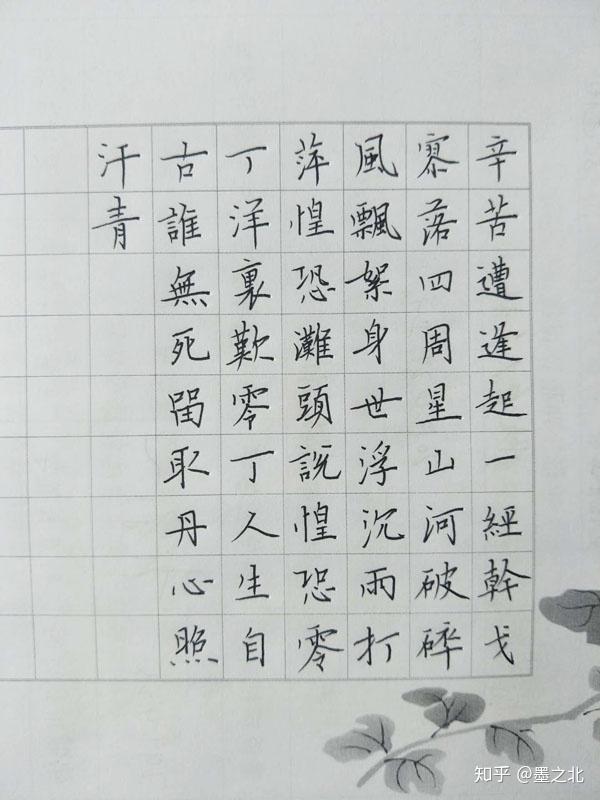 辛苦遭逢起一經幹戈
寥落四周星山河破碎
風飄絮身世浮沉雨打
萍惶恐灘頭說惶恐零
丁洋裏歎零丁人生自
古誰無死留取丹心照
汗青
知乎 @墨之北